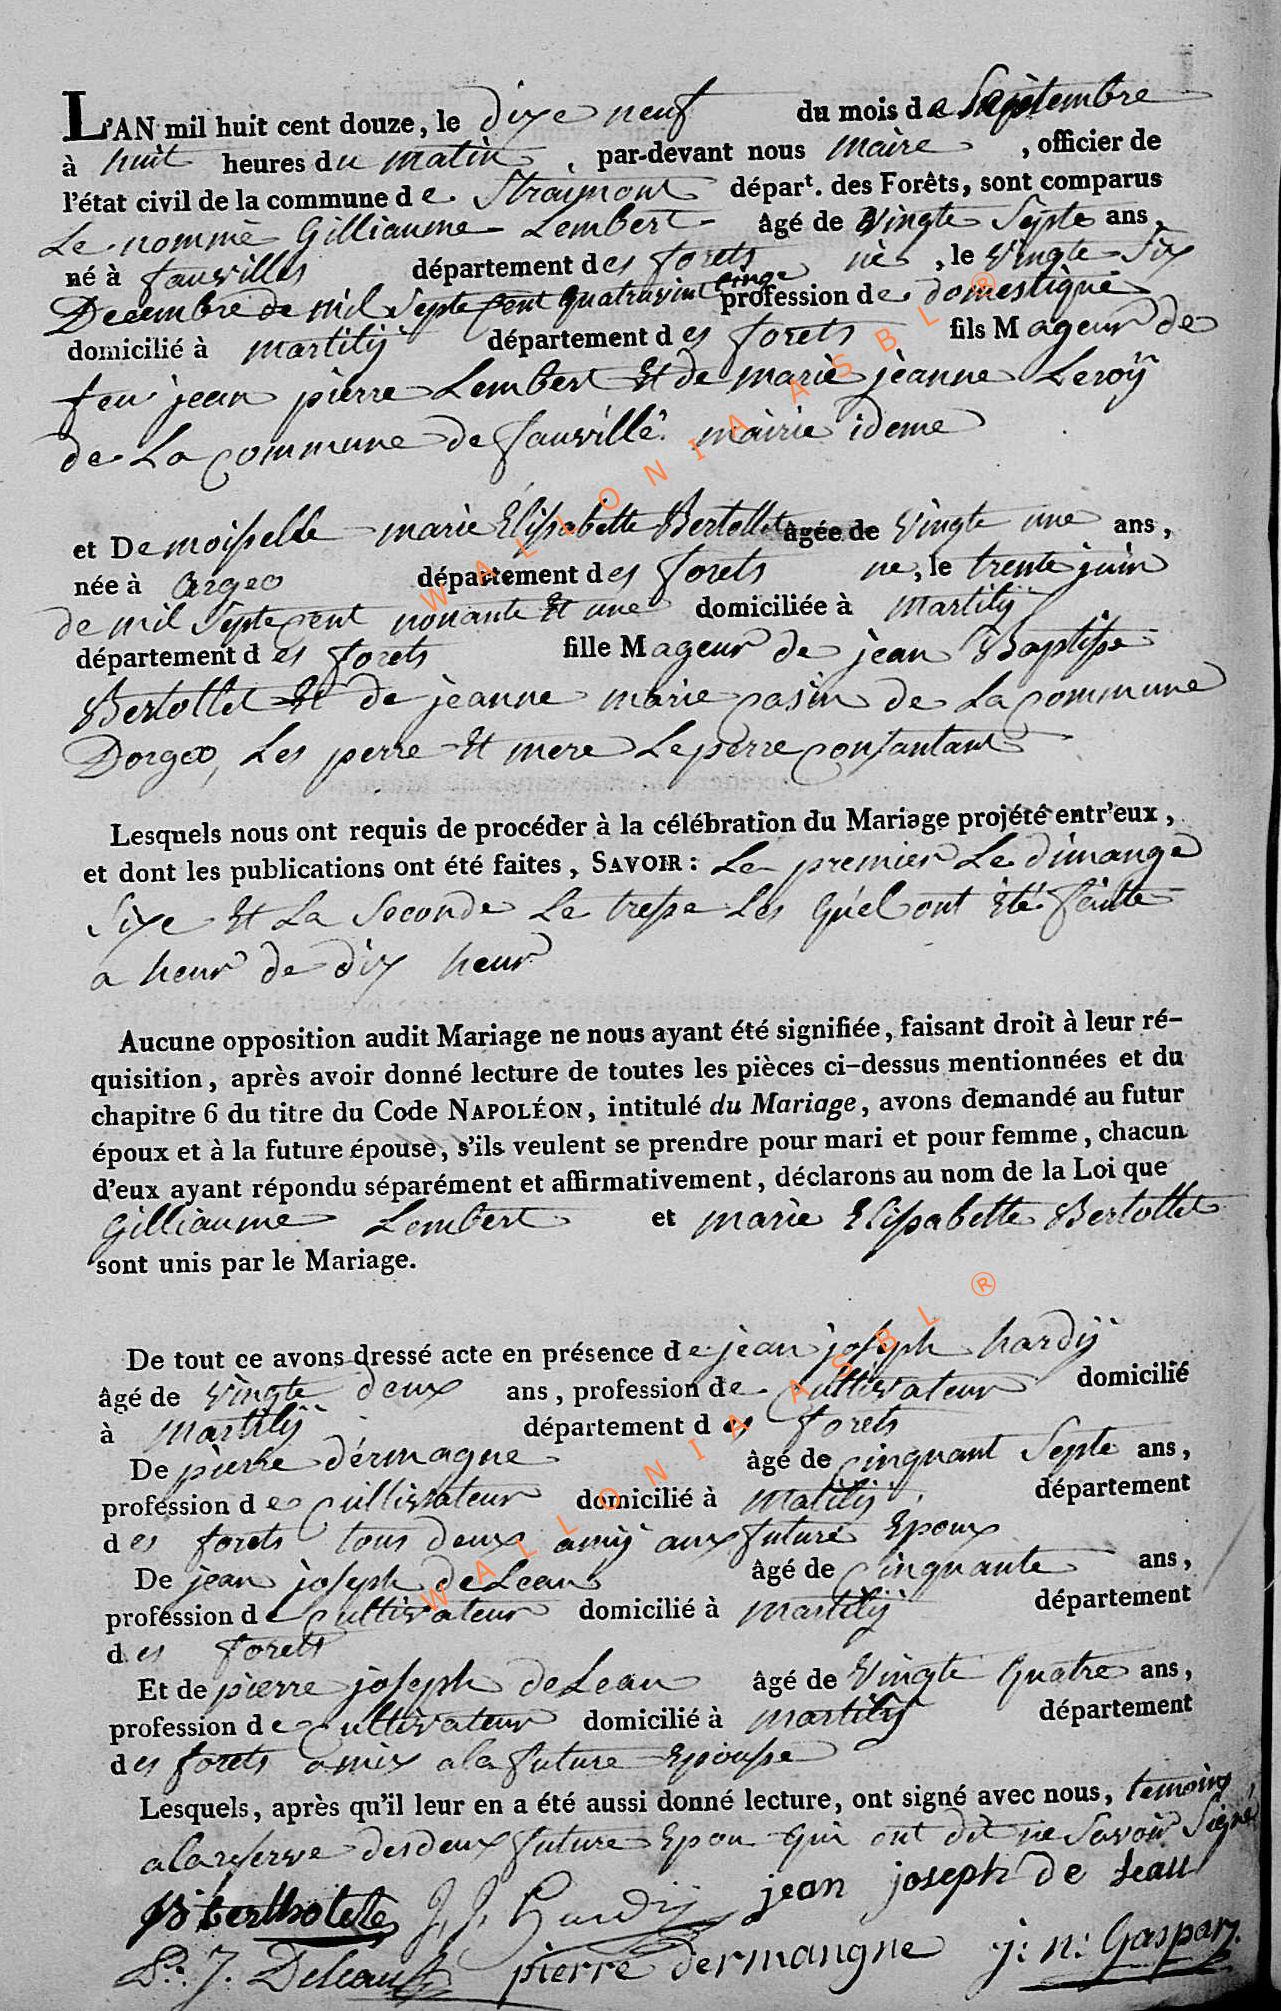 L'AN mil huit cent douze, le dixe neuf du mois de Sapitembre
à huit heures du matin, par-devant nous maire, officier de
l'état civil de la commune de Straimont départ. des Forêts, sont comparus
Le nommé Gilliaume Lembert âgé de vingte Septe ans,
né à fauvilles département des forets né, le vingte Six
Decembre de mil Septe cent quatruvint cinqe profession de domestique
domicilié à martilij département des forets fils Mageur de
feu jean pierre Lembert Et de marie jeanne Leroÿ
de La commune de fauville mairie ideme
et Demoisselle marie Elissabette Bertollet âgée de vingte une ans,
née à orgeo département des forets ne, le trente juin
de mil Septe cent nonante Et une domiciliée à martilij
département des forets fille Mageur de jean Baptisse
Bertollet Et de jeanne marie casin de La commune
Dorgeo, Les perre Et mere Le perre consantant
Lesquels nous ont requis de procéder à la célébration du Mariage projété entr'eux,
et dont les publications ont été faites, SAVOIR: Le premier Le dimange
Sixe Et La Seconde Le tresse Les quel ont été faitte
a heur de dix heur
Aucune opposition audit Mariage ne nous ayant été signifiée, faisant droit à leur ré-
quisition, après avoir donné lecture de toutes les pièces ci-dessus mentionnées et du
chapitre 6 du titre du Code NAPOLÉON, intitulé du Mariage, avons demandé au futur
époux et à la future épouse, s'ils veulent se prendre pour mari et pour femme, chacun
d'eux ayant répondu séparément et affirmativement, déclarons au nom de la Loi que
Gilliaume Lembert et marie Elissabette Bertollet
sont unis par le Mariage.
De tout ce avons dressé acte en présence de jean joseph hardij
âgé de vingte deux ans, profession de Cultivateur domicilié
à martilij département des forets
De pierre dérmagne âgé de cinquant Septe ans,
profession de cultivateur domicilié à matilij département
des forets tous deux amis aux future Epoux
De jean joseph deLeau âgé de cinquante ans,
profession de cultivateur domicilié à martilij département
des forets
Et de pierre joseph deLeau âgé de vingte quatre ans,
profession de cultivateur domicilié à martilij département
des forets amix a la future Epousse
Lesquels, après qu'il leur en a été aussi donné lecture, ont signé avec nous, temoins
a la reserve des deux future Epou qui ont dit ne Savoir Signé
J B berthotete J. J. Hardij jean joseph de Leau
P. J. Deleau pierre dermangne j: n: Gaspar
WALLONIA ASBL ®
WALLONIA ASBL ®